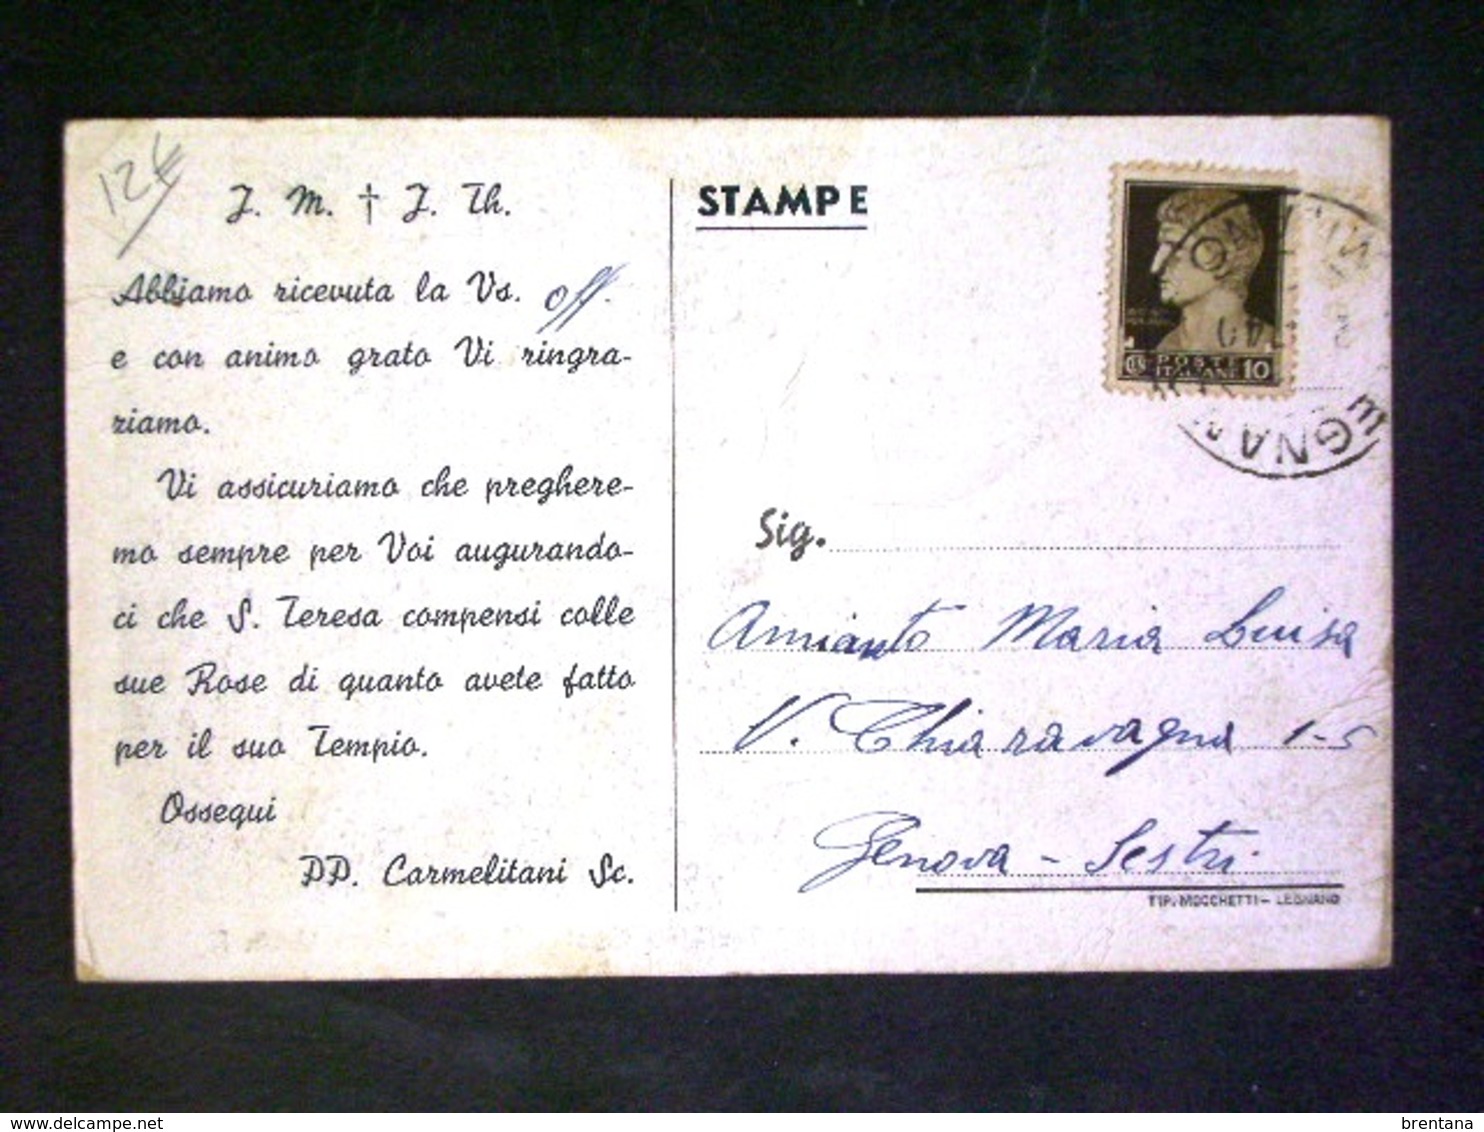 12€
J. M. † J. Th.
Abbiamo ricevuta la Vs. off.
e con animo grato Vi ringra-
ziamo.
Vi assicuriamo che preghere-
mo sempre per Voi augurando-
ci che S. Teresa compensi colle
sue Rose di quanto avete fatto
per il suo Tempio.
Ossequi
PP. Carmelitani Sc.
STAMPE
POSTE
ITALIANE 10
EGNA
Sig.
Amianto Maria Luisa
V. Chiaravagna 1-5
Genova - Sestri
TIP. MOCCHETTI - LEGNANO
brentana